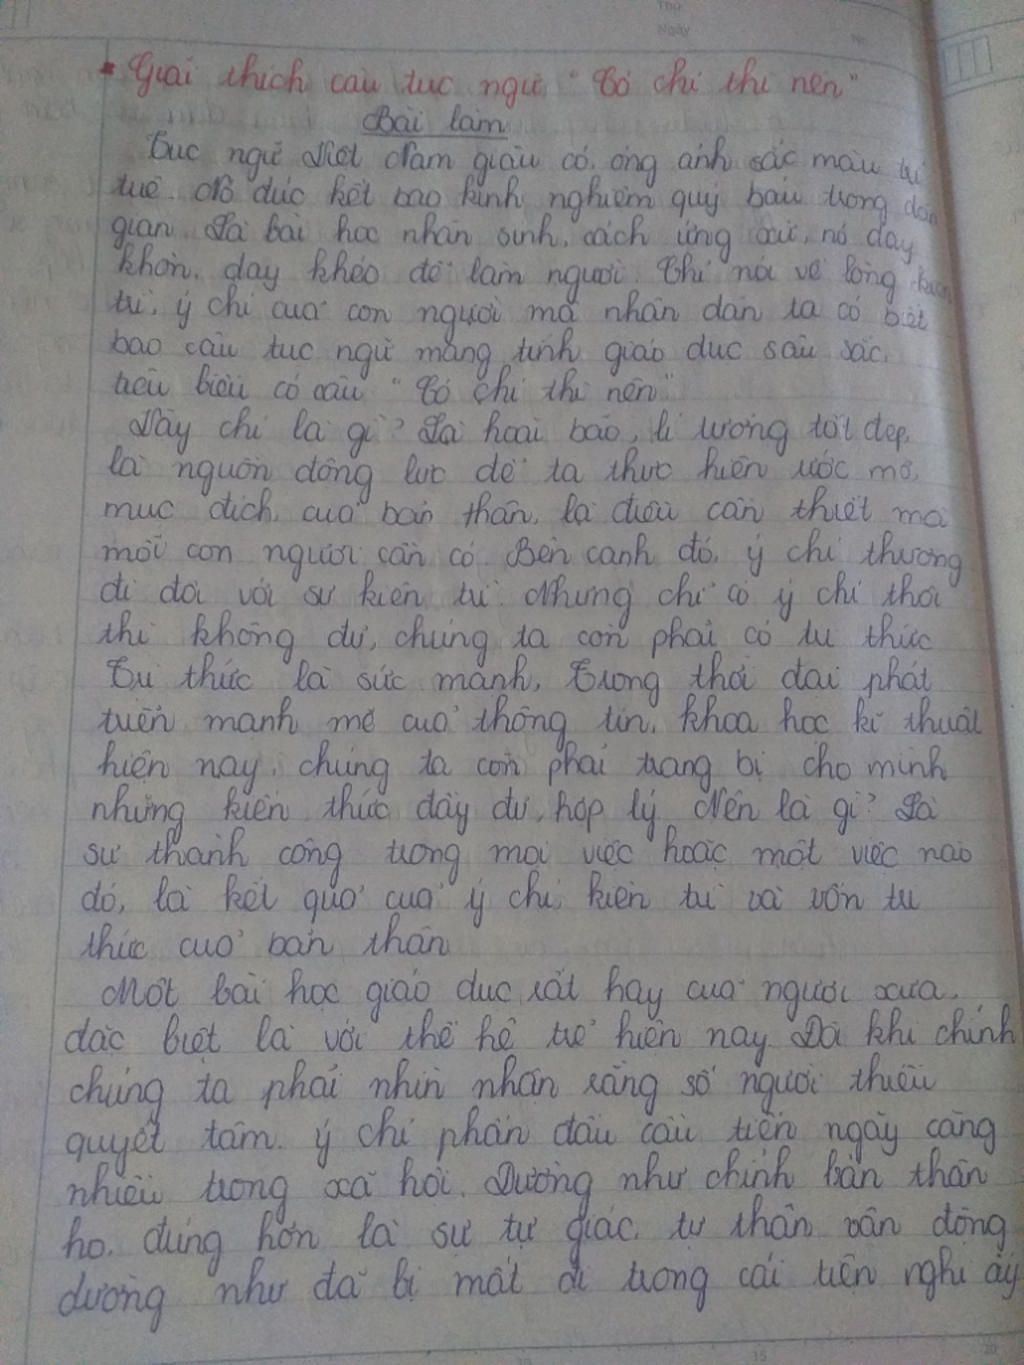 Giải thích câu tục ngữ "Có chí thì nên"
Bài làm
Tục ngữ Việt Nam giàu có, óng ánh sắc màu trí
tuệ. Nó đúc kết bao kinh nghiệm quý báu trong dân
gian. Là bài học nhân sinh, cách ứng xử, nó dạy
khôn, dạy khéo để làm người. Chỉ nói về lòng kiên
trì, ý chí của con người mà nhân dân ta có biết
bao câu tục ngữ mang tính giáo dục sâu sắc,
tiêu biểu có câu "Có chí thì nên"
Vậy chí là gì? Là hoài bão, lí tưởng tốt đẹp,
là nguồn động lực để ta thực hiện ước mơ,
mục đích của bản thân, là điều cần thiết mà
mỗi con người cần có. Bên cạnh đó, ý chí thường
đi đôi với sự kiên trì. Nhưng chỉ có ý chí thôi
thì không đủ, chúng ta còn phải có tri thức
Tri thức là sức mạnh. Trong thời đại phát
triển mạnh mẽ của thông tin, khoa học kĩ thuật
hiện nay, chúng ta còn phải trang bị cho mình
những kiến thức đầy đủ, hợp lý. Nên là gì? Là
sự thành công trong mọi việc hoặc một việc nào
đó, là kết quả của ý chí, kiên trì và vốn tri
thức của bản thân
Một bài học giáo dục rất hay của người xưa,
đặc biệt là với thế hệ trẻ hiện nay. Đôi khi chính
chúng ta phải nhìn nhận rằng số người thiếu
quyết tâm, ý chí phấn đấu cầu tiến ngày càng
nhiều trong xã hội. Dường như chính bản thân
họ, đúng hơn là sự tự giác, tự thân vận động
dường như đã bị mất đi trong cái tiện nghi ấy